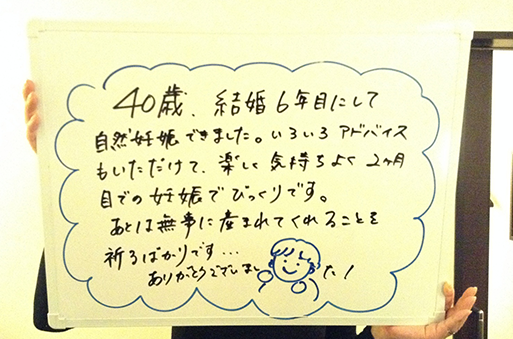 40歳、結婚6年目にして
自然妊娠できました。いろいろアドバイス
もいただけて、楽しく気持ちよく2ヶ月
目での妊娠でびっくりです。
あとは無事に産まれてくれることを
祈るばかりです…
ありがとうございました！